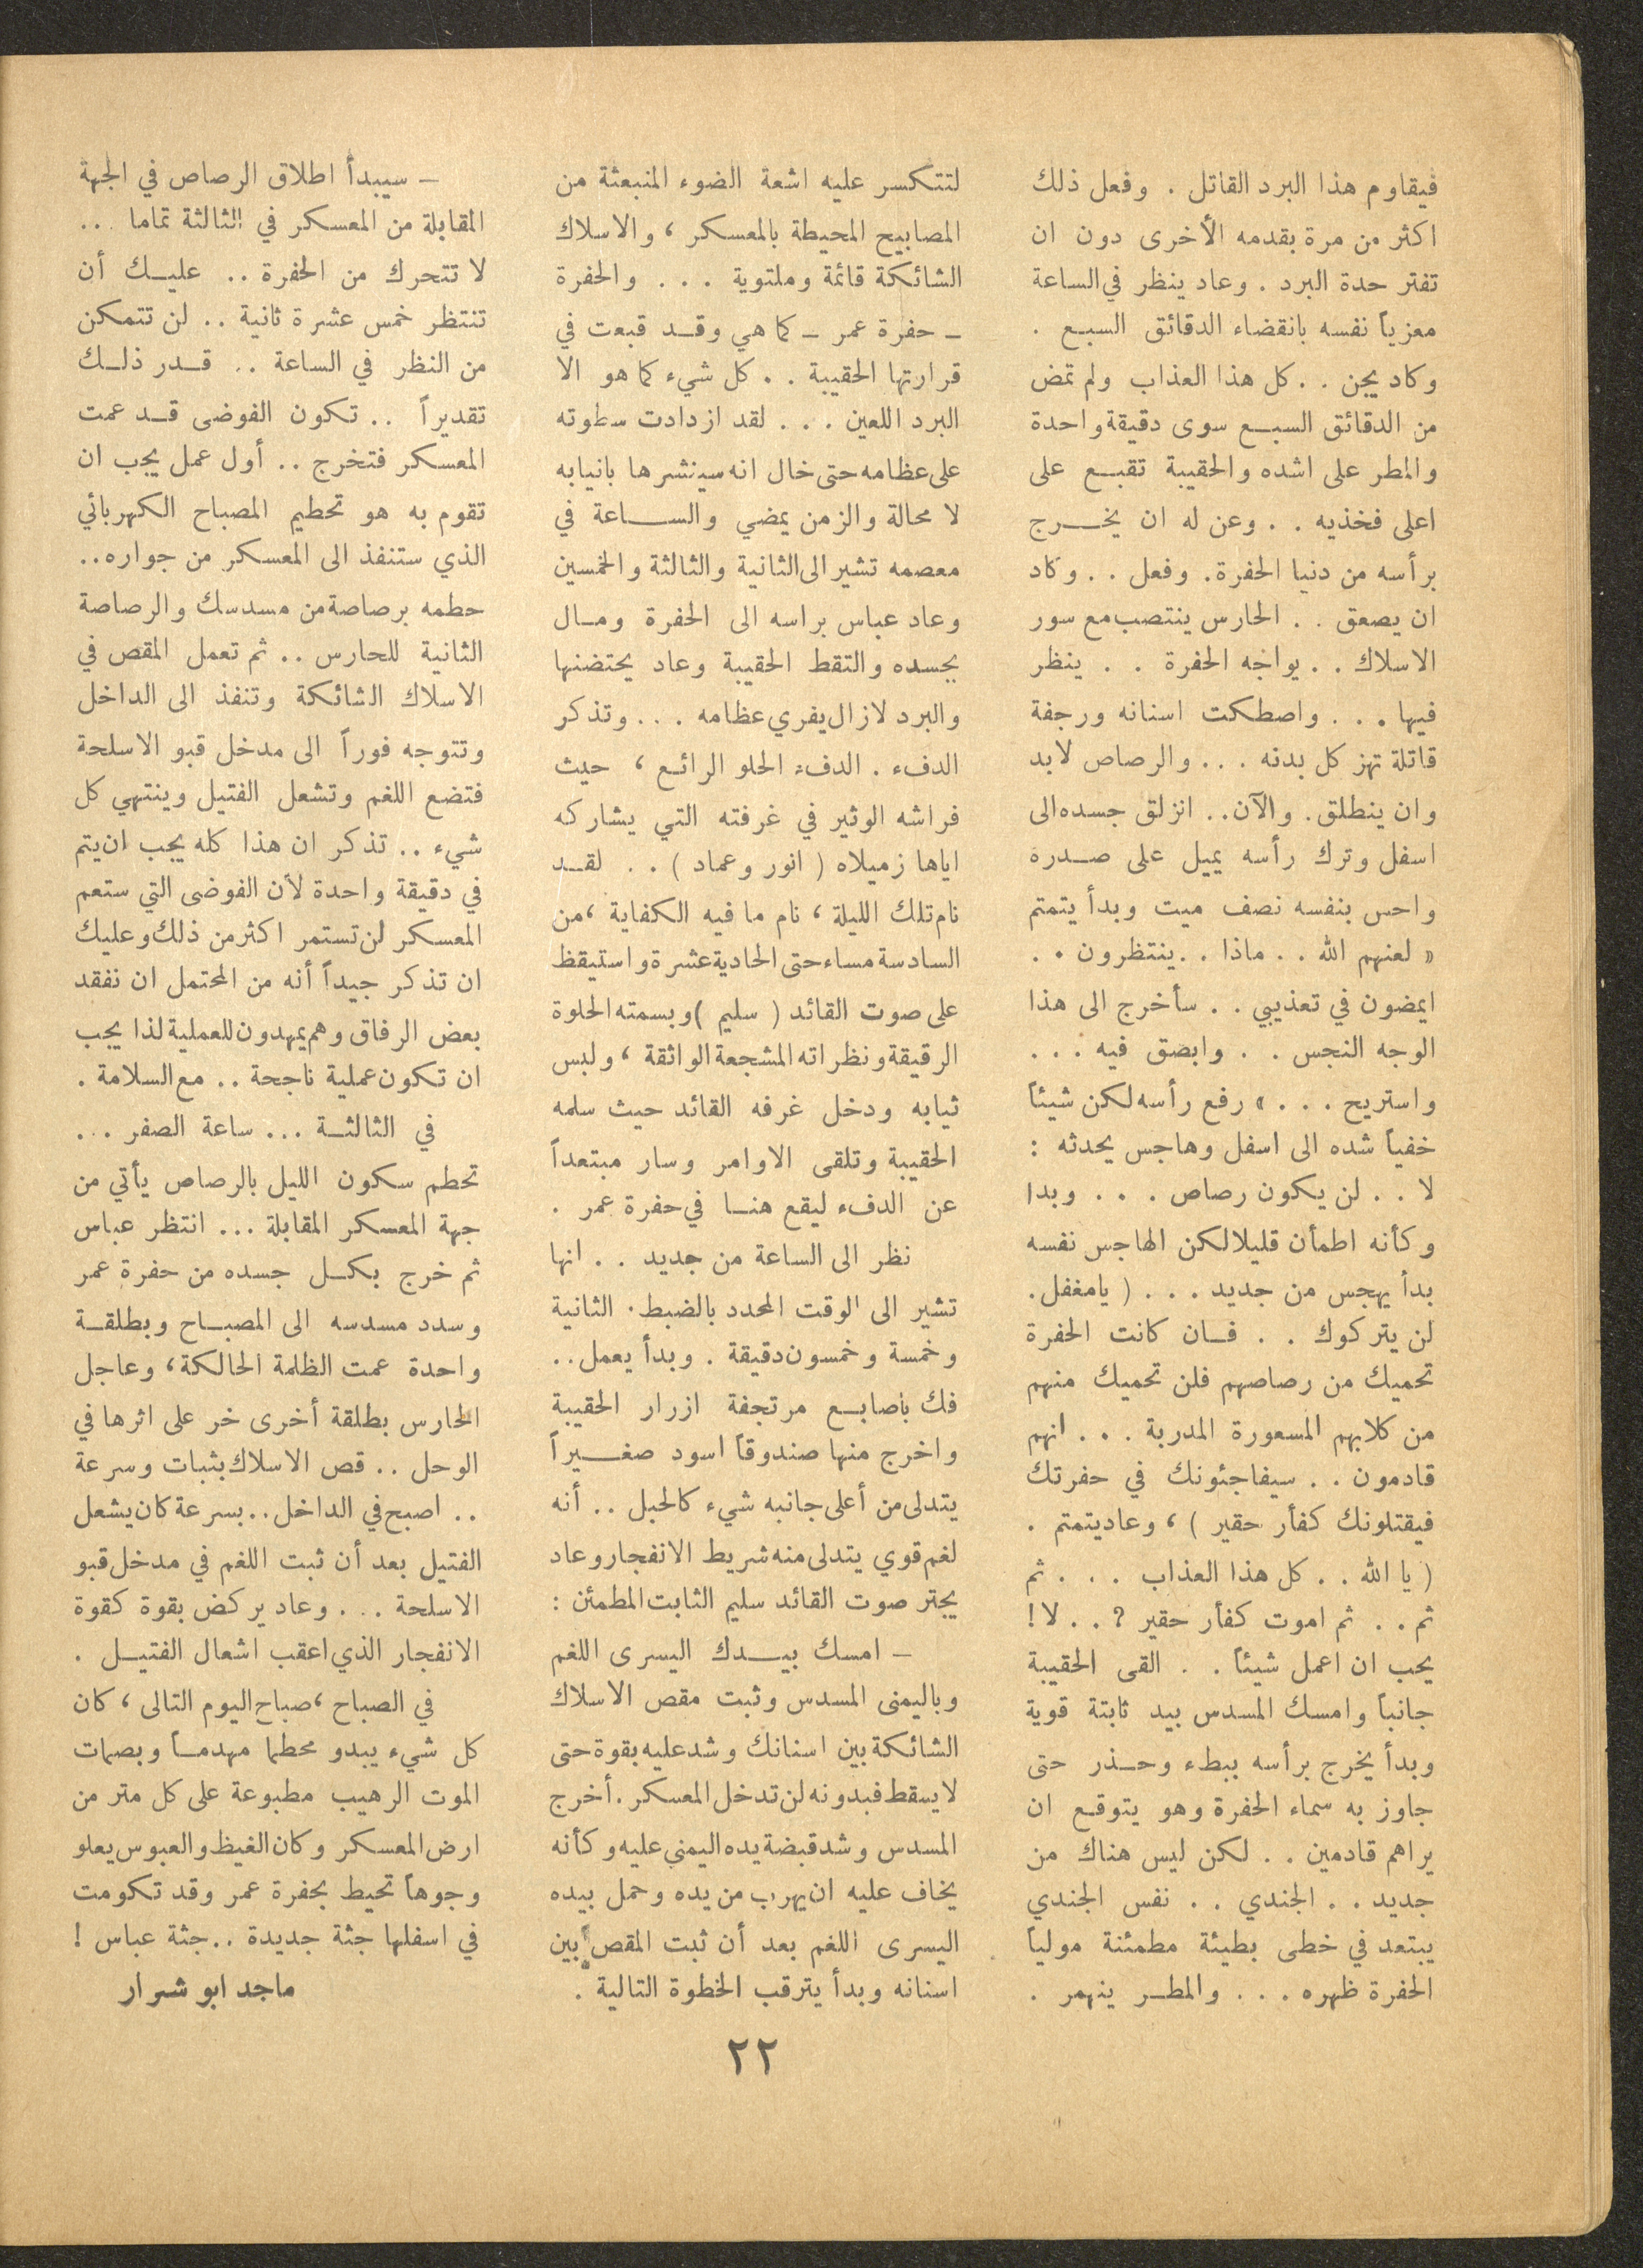 فيقاوم هذا البرد القاتل . وفعل ذلك
اكثر من مرة بقدمه الأخرى دون ان
تفتر حدة البرد . وعاد ينظر في الساعة
معزياً نفسه بانقضاء الدقائق السبع .
وكاد يجن . . كل هذا العذاب ولم تمض
من الدقائق السبع سوى دقيقة واحدة
والمطر على اشده والحقيبة تقبع على
اعلى فخذيه . . وعن له ان يخرج
برأسه من دنيا الحفرة. وفعل . . وكاد
ان يصعق . . الحارس ينتصب مع سور
الاسلاك . . يواجه الحفرة . . ينظر
فيها . . . واصطكت اسنانه ورجفة
قاتلة تهز كل بدنه . . . والرصاص لابد
وان ينطلق. والآن.. انزلق جسده الى
اسفل وترك رأسه يميل على صدره
واحس بنفسه نصف ميت وبدأ يتمتم
« لعنهم الله . . ماذا . . ينتظرون . .
ايمضون في تعذيبي . . سأخرج الى هذا
الوجه النجس . . وابصق فيه . . .
واستريح . . . » رفع رأسه لكن شيئاً
خفياً شده الى اسفل وهاجس يحدثه :
لا . . لن يكون رصاص . . . وبدا
وكأنه اطمأن قليلا لكن الهاجس نفسه
بدأ يهجس من جديد . . . ( يامغفل.
لن يتركوك . . فان كانت الحفرة
تحميك من رصاصهم فلن تحميك منهم
من كلابهم المسعورة المدربة . . . انهم
قادمون . . سيفاجئونك في حفرتك
فيقتلونك كفأر حقير ) ، وعاد يتمتم .
( يا الله . . كل هذا العذاب . . . ثم
ثم . . ثم اموت كفأر حقير ؟ . . لا !
يجب ان اعمل شيئاً . . القى الحقيبة
جانباً وامسك المسدس بيد ثابتة قوية
وبدأ يخرج برأسه ببطء وحذر حتى
جاوز به سماء الحفرة وهو يتوقع ان
يراهم قادمين . . لكن ليس هناك من
جديد . . الجندي . . نفس الجندي
يبتعد في خطى بطيئة مطمئنة مولياً
الحفرة ظهره . . . والمطر ينهمر .
لتتكسر عليه اشعة الضوء المنبعثة من
المصابيح المحيطة بالمعسكر ، والاسلاك
الشائكة قائمة وملتوية . . . والحفرة
– حفرة عمر – كما هي وقد قبعت في
قرارتها الحقيبة . . كل شيء كما هو الا
البرد اللعين . . . لقد ازدادت سطوته
على عظامه حتى خال انه سينشرها بانيابه
لا محالة والزمن يمضي والساعة في
معصمه تشير الى الثانية والثالثة والخمسين
وعاد عباس براسه الى الحفرة ومال
بجسده والتقط الحقيبة وعاد يحتضنها
والبرد لازال يفري عظامه . . . وتذكر
الدفء . الدفء الحلو الرائع ، حيث
فراشه الوثير في غرفته التي يشاركه
اياها زميلاه ( انور وعماد ) . . لقد
نام تلك الليلة ، نام ما فيه الكفاية ، من
السادسة مساء حتى الحادية عشرة واستيقظ
على صوت القائد ( سليم ) وبسمته الحلوة
الرقيقة ونظراته المشجعة الواثقة ، ولبس
ثيابه ودخل غرفه القائد حيث سلمه
الحقيبة وتلقى الاوامر وسار مبتعداً
عن الدفء ليقع هنا في حفرة عمر .
نظر الى الساعة من جديد . . انها
تشير الى الوقت المحدد بالضبط . الثانية
وخمسة وخمسون دقيقة . وبدأ يعمل..
فك باصابع مرتجفة ازرار الحقيبة
واخرج منها صندوقاً اسود صغيراً
يتدلى من أعلى جانبه شيء كالحبل .. أنه
لغم قوي يتدلى منه شريط الانفجار وعاد
يجتر صوت القائد سليم الثابت المطمئن :
– امسك بيدك اليسرى اللغم
وباليمنى المسدس وثبت مقص الاسلاك
الشائكة بين اسنانك وشد عليه بقوة حتى
لا يسقط فبدونه لن تدخل المعسكر . أخرج
المسدس وشد قبضة يده اليمني عليه وكأنه
يخاف عليه ان يهرب من يده وحمل بيده
اليسرى اللغم بعد أن ثبت المقص بين
اسنانه وبدأ يترقب الخطوة التالية .
– سيبدأ اطلاق الرصاص في الجهة
المقابلة من المعسكر في الثالثة تماما ...
لا تتحرك من الحفرة .. عليك أن
تنتظر خمس عشرة ثانية .. لن تتمكن
من النظر في الساعة .. قدر ذلك
تقديراً .. تكون الفوضى قد عمت
المعسكر فتخرج .. أول عمل يجب ان
تقوم به هو تحطيم المصباح الكهربائي
الذي ستنفذ الى المعسكر من جواره..
حطمه برصاصة من مسدسك والرصاصة
الثانية للحارس .. ثم تعمل المقص في
الاسلاك الشائكة وتنفذ الى الداخل
وتتوجه فوراً الى مدخل قبو الاسلحة
فتضع اللغم وتشعل الفتيل وينتهي كل
شيء .. تذكر ان هذا كله يجب ان يتم
في دقيقة واحدة لأن الفوضى التي ستعم
المعسكر لن تستمر اكثر من ذلك وعليك
ان تذكر جيداً أنه من المحتمل ان نفقد
بعض الرفاق وهم يمهدون للعملية لذا يجب
ان تكون عملية ناجحة .. مع السلامة .
في الثالثة ... ساعة الصفر ...
تحطم سكون الليل بالرصاص يأتي من
جهة المعسكر المقابلة ... انتظر عباس
ثم خرج بكل جسده من حفرة عمر
وسدد مسدسه الى المصباح وبطلقة
واحدة عمت الظلمة الحالكة ، وعاجل
الحارس بطلقة أخرى خر على اثرها في
الوحل .. قص الاسلاك بثبات وسرعة
.. اصبح في الداخل .. بسرعة كان يشعل
الفتيل بعد أن ثبت اللغم في مدخل قبو
الاسلحة ... وعاد يركض بقوة كقوة
الانفجار الذي اعقب اشعال الفتيل .
في الصباح ، صباح اليوم التالى ، كان
كل شيء يبدو محطما مهدماً وبصمات
الموت الرهيب مطبوعة على كل متر من
ارض المعسكر وكان الغيظ والعبوس يعلو
وجوهاً تحيط بحفرة عمر وقد تكومت
في اسفلها جثة جديدة .. جثة عباس !
ماجد ابو شرار
٢٢